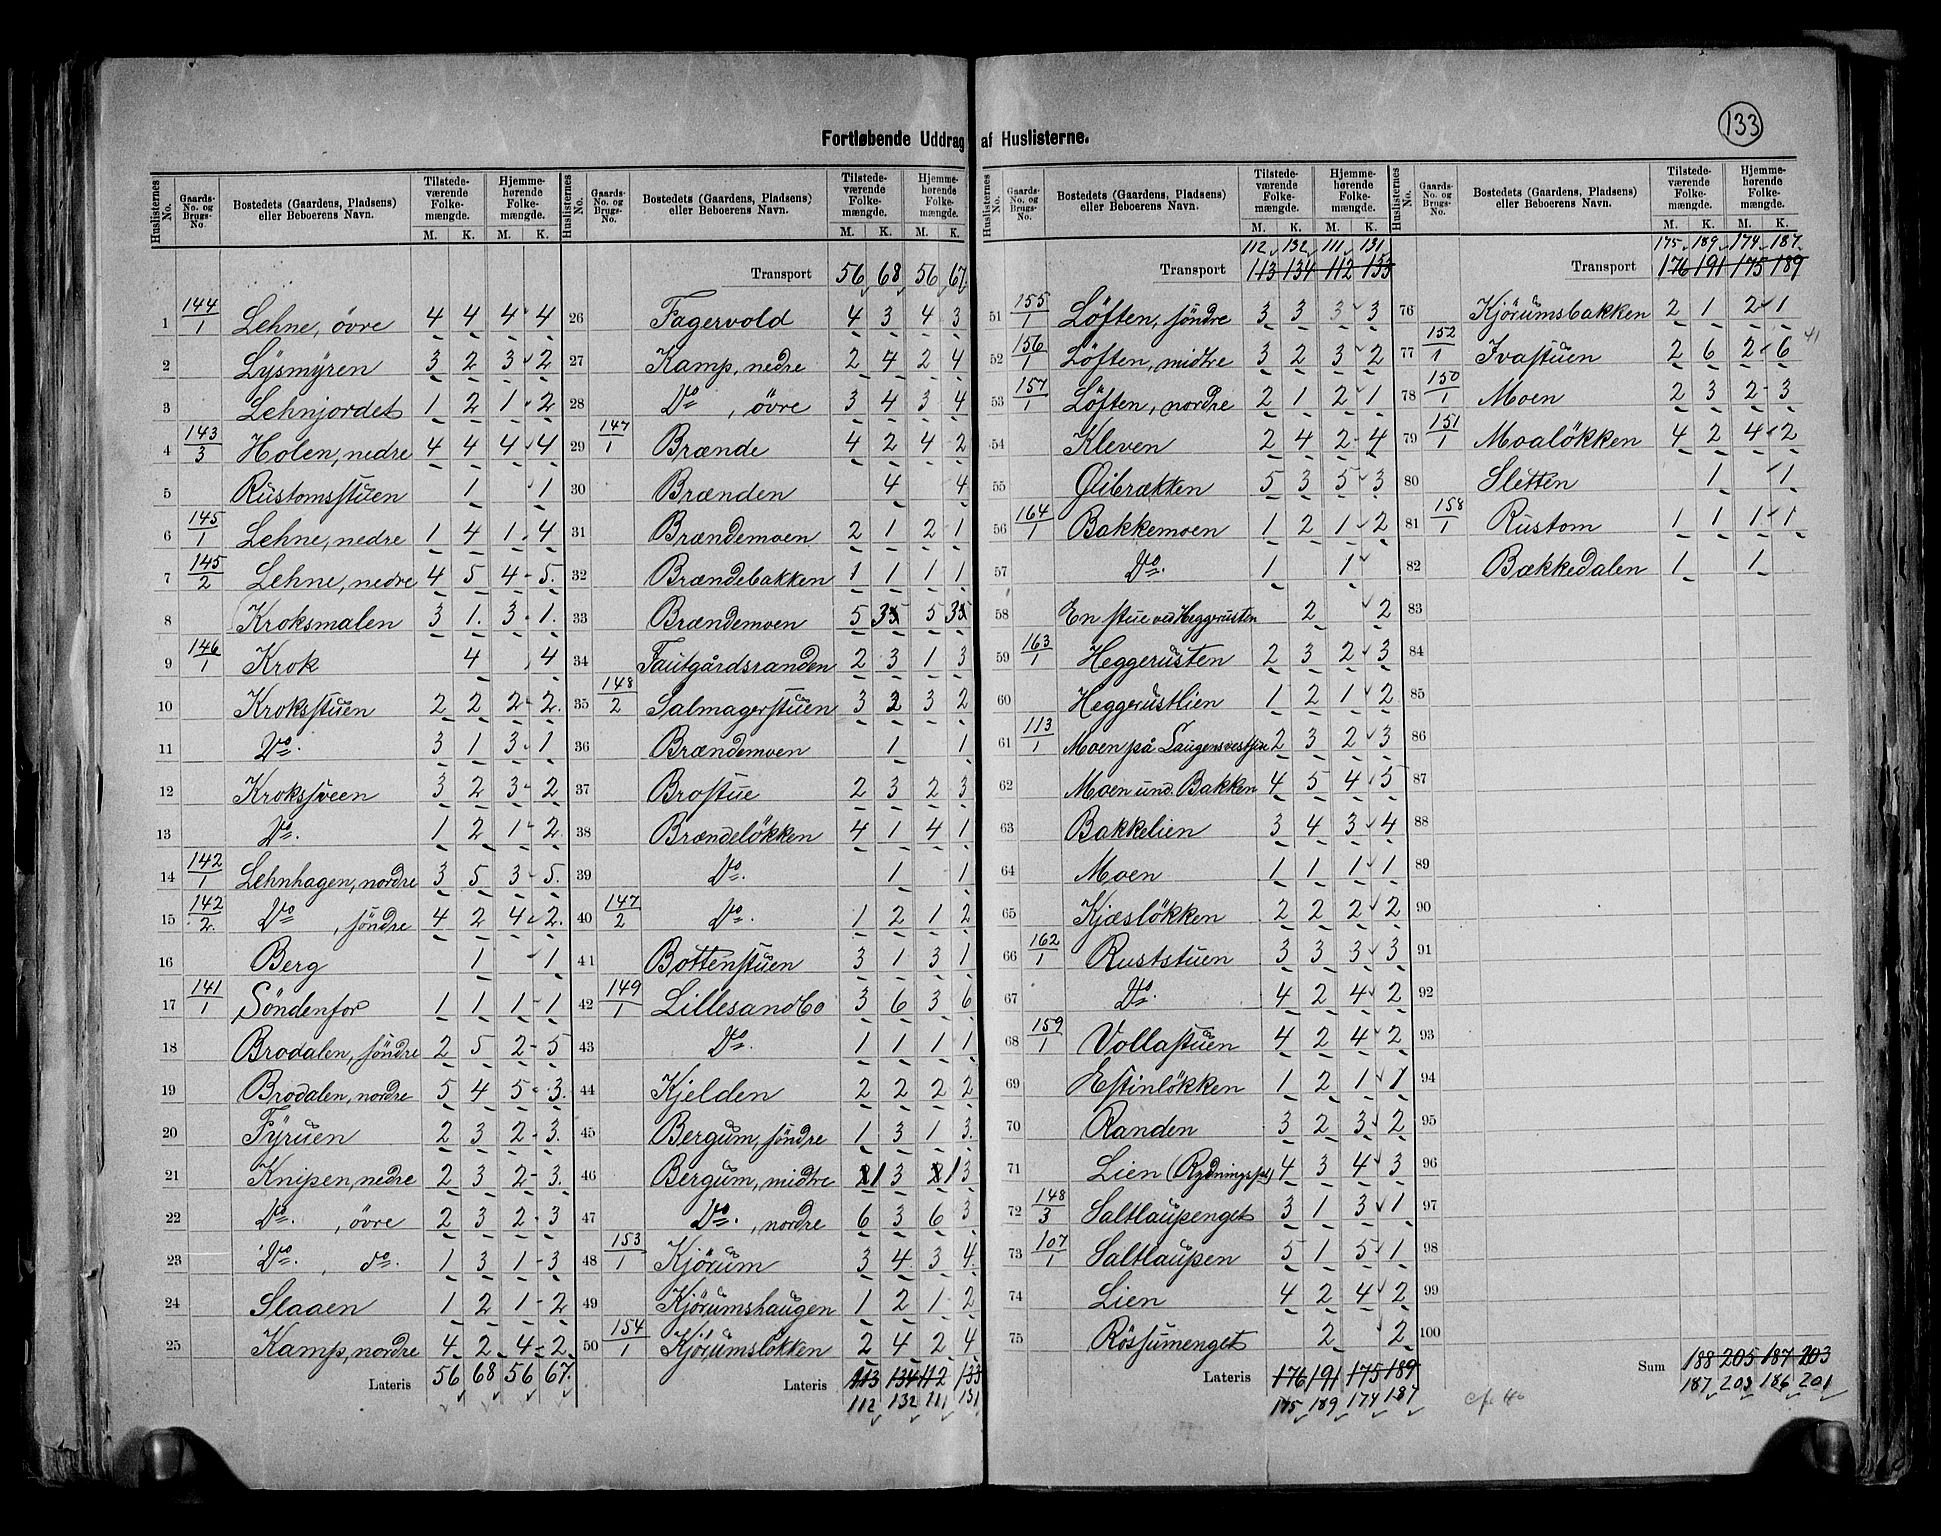 133
Fortløbende Uddrag af Huslisterne.
Huslisternes No. | Gaards-No. og Brugs-No. | Bostedets (Gaardens, Pladsens) eller Beboerens Navn. | Tilstedeværende Folkemængde. M. K. | Hjemmehørende Folkemængde. M. K.
1 144/1 Lehne, övre 4 4 4 4
2 Lysmyren 3 2 3 2
3 Lehnjordet 1 2 1 2
4 143/3 Holen, nedre 4 4 4 4
5 Rustomsstuen 1 1
6 145/1 Lehne, nedre 1 4 1 4
7 145/2 Lehne, nedre 4 5 4 5.
8 Kroksmalen 3 1. 3 1.
9 146/1 Krok 4 4
10 Kroksstuen 2 2 2 2.
11 Do. 3 1 3 1
12 Kroksveen 3 2 3 2
13 Do. 1 2 1 2.
14 142/1 Lehnhagen, nordre 3 5 3 5.
15 142/2. Do, söndre 4 2 4 2.
16 Berg 1 1
17 141/1 Söndenfor 1 1 1 1
18 Brodalen, söndre 2 5 2 5
19 Brodalen, nordre 5 4 5 3.
20 Fyruen 2 3 2 3.
21 Knipen, nedre 2 3 2 3.
22 Do., övre 2 3 2 3
23 Do., do. 1 3 1 3
24 Slaaen 1 2 1 2
25 Kamp, nordre 4 2 4 2.
Lateris 56 68 56 67.
Huslisternes No. | Gaards-No. og Brugs-No. | Bostedets (Gaardens, Pladsens) eller Beboerens Navn. | Tilstedeværende Folkemængde. M. K. | Hjemmehørende Folkemængde. M. K.
Transport 56 68 56 67.
26 Fagervold 4 3 4 3
27 Kamp, nedre 2 4 2 4
28 Do, övre 3 4 3 4
29 147/1 Brænde 4 2 4 2
30 Brænden 4 4
31 Brændemoen 2 1 2 1
32 Brændebakken 1 1 1 1
33 Brændemoen 5 3 5 3
34 Tautgårdsranden 2 3 1 3
35 148/2 Salmagerstuen 3 2 3 2
36 Brændemoen 1 1
37 Brostue 2 3 2 3
38 Brændelökken 4 1 4 1
39 Do. 1 1
40 147/2 Do. 1 2 1 2
41 Bottenstuen 3 1 3 1
42 149/1 Lillesandbo 3 6 3 6
43 Do. 1 1 1 1
44 Kjelden 2 2 2 2
45 Bergum, söndre 1 3 1 3.
46 Bergum, midtre 1 3 1 3
47 Do., nordre 6 3 6 3
48 153/1 Kjörum 3 4. 3 4.
49 Kjörumshaugen 1 2 1 2
50 154/1 Kjörumslökken 2 4 2 4
Lateris 113 134 112 133
112 132 111 131
Huslisternes No. | Gaards-No. og Brugs-No. | Bostedets (Gaardens, Pladsens) eller Beboerens Navn. | Tilstedeværende Folkemængde. M. K. | Hjemmehørende Folkemængde. M. K.
112 132 111 131
Transport 113 134 112 133
51 155/1 Löften, söndre 3 3 3 3
52 156/1 Löften, midtre 3 2 3 2
53 157/1 Löften, nordre 2 1 2 1
54 Kleven 2 4 2 4
55 Gibrækken 5 3 5 3
56 164/1 Bakkemoen 1 2 1 2
57 Do. 1 1
58 En stue ved Heggerusten 2 2
59 163/1 Heggerusten 2 3 2 3
60 Heggerustlien 1 2 1 2
61 113/1 Moen på Laugens 2 3 2 3
62 Moen und. Bakken 4 5 4 5
63 Bakkelien 3 4 3 4
64 Moen 1 1 1 1
65 Kjæslökken 2 2 2 2
66 162/1 Ruststuen 3 3 3 3
67 Do. 4 2 4 2
68 159/1 Vollastuen 4 2 4 2
69 Estinlökken 1 2 1 1
70 Randen 3 2 3 2
71 Lien (Rydningspl) 4 3 4 3
72 148/3 Saltlaupenget 3 1 3 1
73 107/1 Saltlaupen 5 1 5 1
74 Lien 4 2 4 2
75 Rössumenget 2 2
Lateris 176 191 175 189
175 189 174 187
Huslisternes No. | Gaards-No. og Brugs-No. | Bostedets (Gaardens, Pladsens) eller Beboerens Navn. | Tilstedeværende Folkemængde. M. K. | Hjemmehørende Folkemængde. M. K.
175 189 174 187
Transport 176 191 175 189
76 Kjörumsbakken 2 1 2 1
77 152/1 Ivastuen 2 6 2 6 41
78 150/1 Moen 2 3 2 3
79 151/1 Moalökken 4 2 4 2
80 Sletten 1 1
81 158/1 Rustom 1 1 1 1
82 Bækkedalen 1 1
83
84
85
86
87
88
89
90
91
92
93
94
95
96
97
98
99
100
Sum 188 205 187 203
187 203 186 201